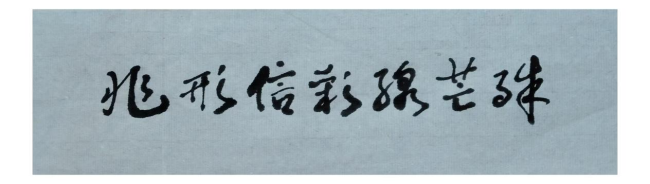 兆形信彩線芒殊